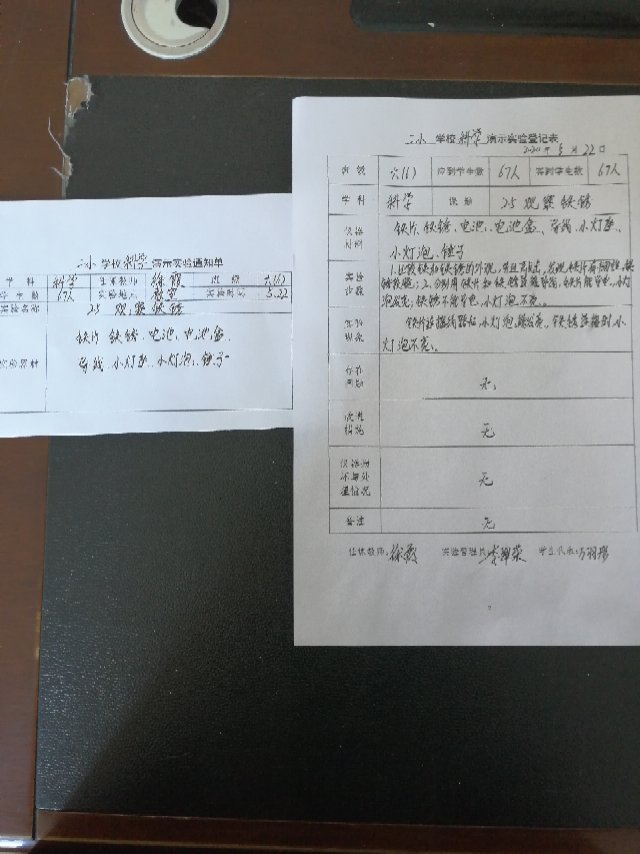 二小 学校 科学 演示实验通知单
学科 科学 任课教师 徐霞 班级 六(1)
学生数 67人 实验地点 教室 实验时间 5.22
实验名称 25 观察铁锈
实验器材 铁片、铁锈、电池、电池盒、
导线、小灯座、小灯泡、锤子
二小 学校 科学 演示实验登记表
2020年5月22日
班级 六(1) 应到学生数 67人 实到学生数 67人
学科 科学 课题 25 观察铁锈
仪器材料 铁片、铁锈、电池、电池盒、导线、小灯座、
小灯泡、锤子
实验步骤 1.比较铁和铁锈的外观,
2.分别用铁片和铁锈
泡发亮,铁锈不能导电,小灯泡不亮。
实验现象 小灯泡能发亮。铁锈连接时,小
灯泡不亮。
存在问题 无
改进措施 无
仪器损坏与处理情况 无
备注 无
任课教师:徐霞 实验管理员: 学生代表: